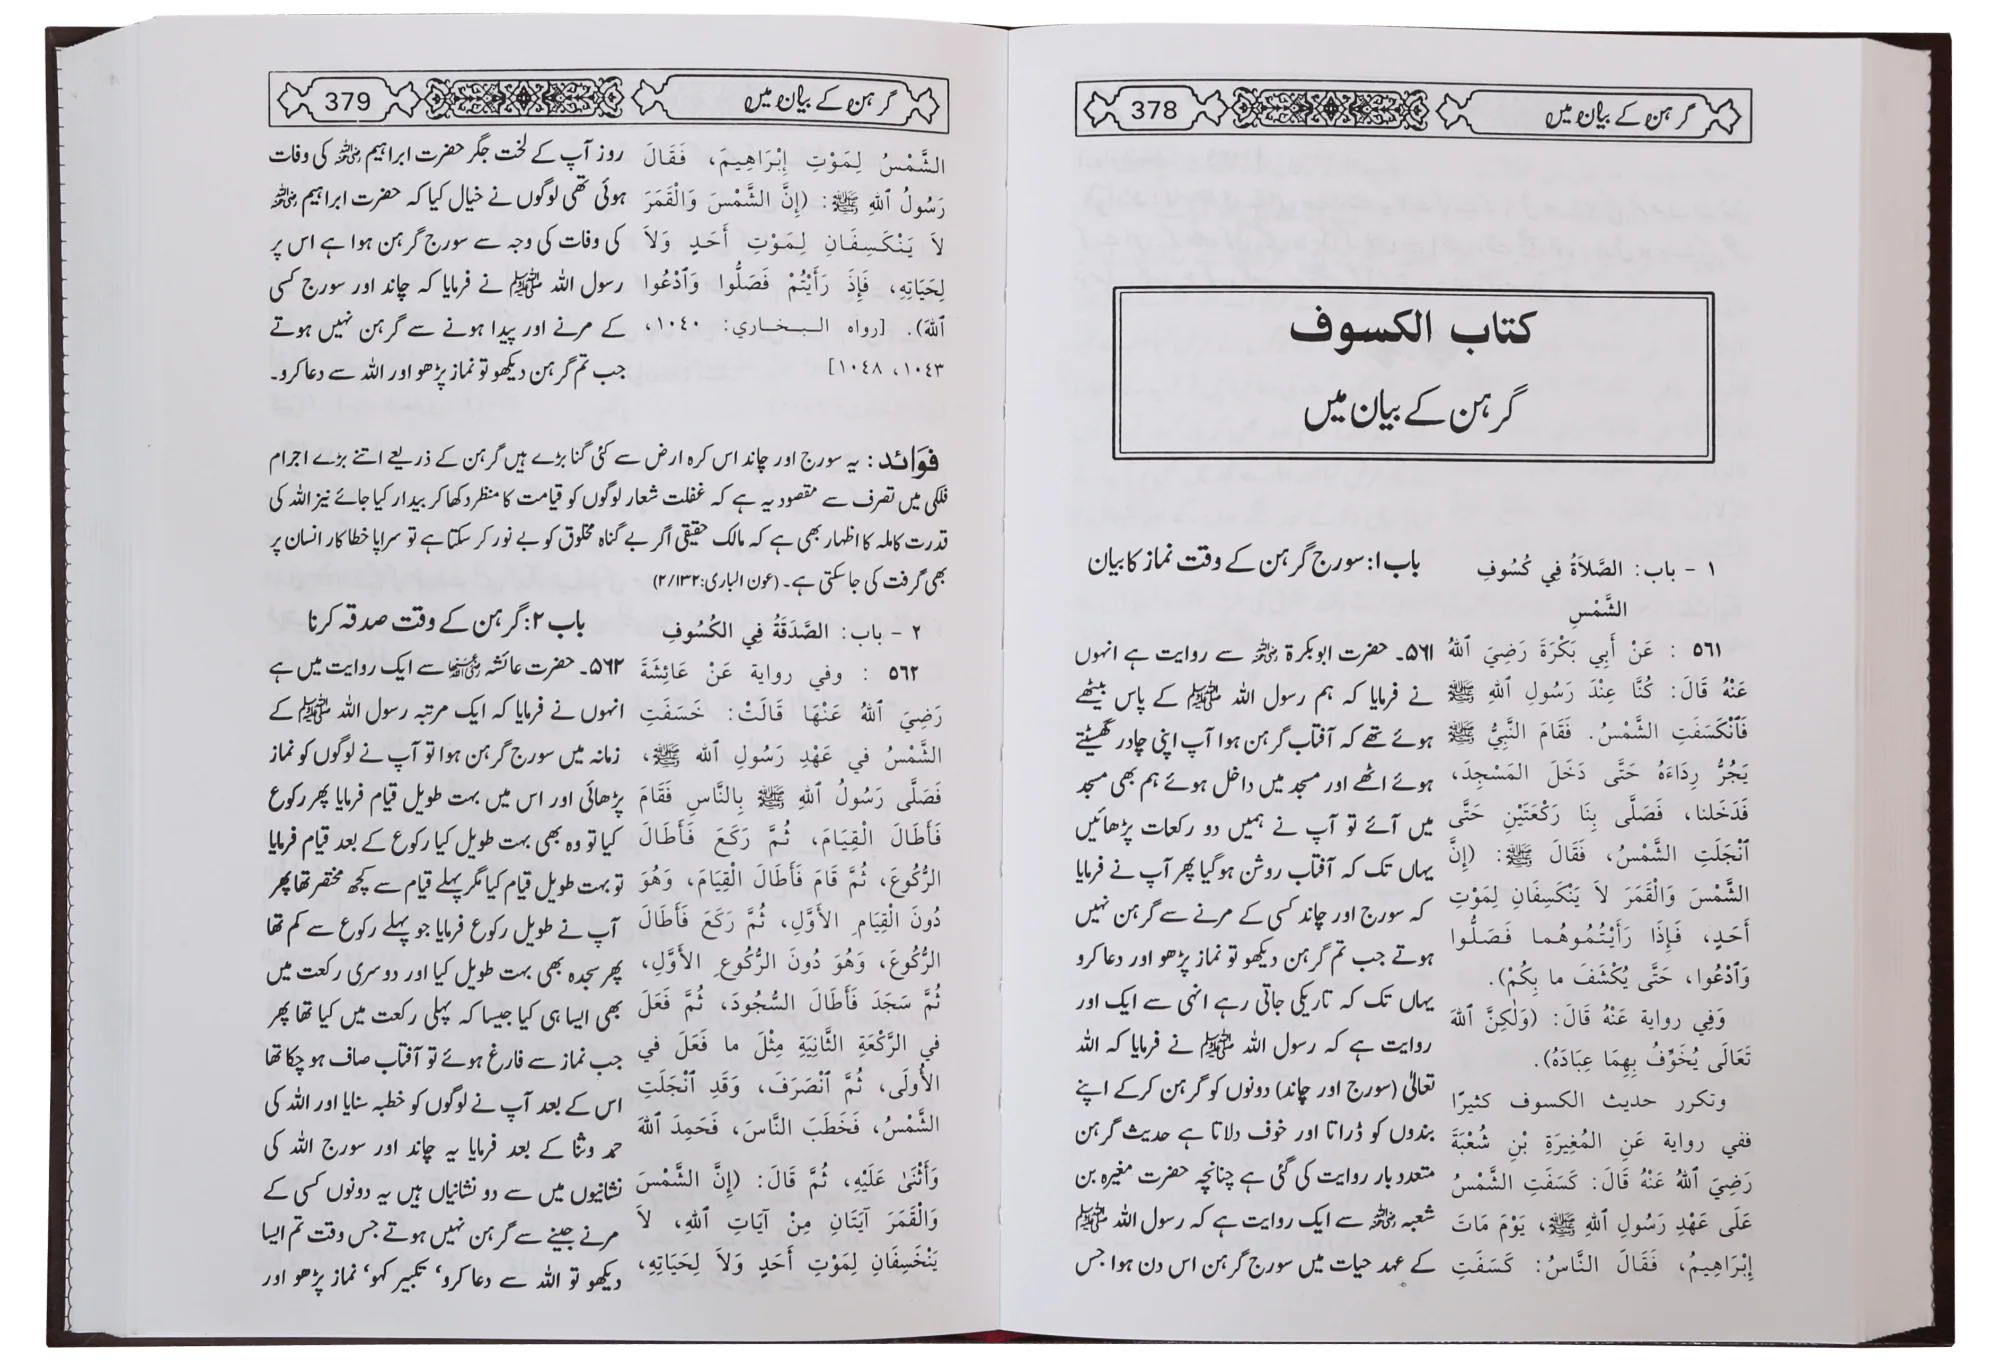 گرہن کے بیان میں
378
کتاب الکسوف
گرہن کے بیان میں
١ - باب: الصَّلاَةُ فِي كُسُوفِ
الشَّمْسِ
٥٦١ : عَنْ أَبِي بَكْرَةَ رَضِيَ ٱللهُ
عَنْهُ قَالَ: كُنَّا عِنْدَ رَسُولِ ٱللهِ ﷺ
فَٱنْكَسَفَتِ الشَّمْسُ. فَقَامَ النَّبِيُّ ﷺ
يَجُرُّ رِدَاءَهُ حَتَّى دَخَلَ المَسْجِدَ،
فَدَخَلنا، فَصَلَّى بِنَا رَكْعَتَيْنِ حَتَّى
ٱنْجَلَتِ الشَّمْسُ، فَقَالَ ﷺ: (إِنَّ
الشَّمْسَ وَالْقَمَرَ لاَ يَنْكَسِفَانِ لِمَوْتِ
أَحَدٍ، فَإِذَا رَأَيْتُمُوهُما فَصَلُّوا
وَٱدْعُوا، حَتَّى يُكْشَفَ ما بِكُمْ).
وَفِي رواية عَنْهُ قَالَ: (وَلٰكِنَّ ٱللهَ
تَعَالَى يُخَوِّفُ بِهِمَا عِبَادَهُ).
وتكرر حديث الكسوف كثيرًا
ففي رواية عَنِ المُغِيرَةِ بْنِ شُعْبَةَ
رَضِيَ ٱللهُ عَنْهُ قَالَ: كَسَفَتِ الشَّمْسُ
عَلَى عَهْدِ رَسُولِ ٱللهِ ﷺ، يَوْمَ مَاتَ
إِبْرَاهِيمُ، فَقَالَ النَّاسُ: كَسَفَتِ
باب ۱: سورج گرہن کے وقت نماز کا بیان
۵۶۱۔ حضرت ابوبکرۃ رضی اللہ عنہ سے روایت ہے انہوں
نے فرمایا کہ ہم رسول اللہ ﷺ کے پاس بیٹھے
ہوئے تھے کہ آفتاب گرہن ہوا آپ اپنی چادر گھسیٹتے
ہوئے اٹھے اور مسجد میں داخل ہوئے ہم بھی مسجد
میں آئے تو آپ نے ہمیں دو رکعات پڑھائیں
یہاں تک کہ آفتاب روشن ہوگیا پھر آپ نے فرمایا
کہ سورج اور چاند کسی کے مرنے سے گرہن نہیں
ہوتے جب تم گرہن دیکھو تو نماز پڑھو اور دعا کرو
یہاں تک کہ تاریکی جاتی رہے انہی سے ایک اور
روایت ہے کہ رسول اللہ ﷺ نے فرمایا کہ اللہ
تعالیٰ (سورج اور چاند) دونوں کو گرہن کرکے اپنے
بندوں کو ڈراتا اور خوف دلاتا ہے حدیث گرہن
متعدد بار روایت کی گئی ہے چنانچہ حضرت مغیرہ بن
شعبہ رضی اللہ عنہ سے ایک روایت ہے کہ رسول اللہ ﷺ
کے عہد حیات میں سورج گرہن اس دن ہوا جس
گرہن کے بیان میں
379
الشَّمْسُ لِمَوْتِ إِبْرَاهِيمَ، فَقَالَ
رَسُولُ ٱللهِ ﷺ: (إِنَّ الشَّمْسَ وَالْقَمَرَ
لاَ يَنْكَسِفَانِ لِمَوْتِ أَحَدٍ وَلاَ
لِحَيَاتِهِ، فَإِذَ رَأَيْتُمْ فَصَلُّوا وَٱدْعُوا
ٱللهَ). [رواه البخاري: ١٠٤٠،
١٠٤٣، ١٠٤٨]
روز آپ کے لخت جگر حضرت ابراہیم رضی اللہ عنہ کی وفات
ہوئی تھی لوگوں نے خیال کیا کہ حضرت ابراہیم رضی اللہ عنہ
کی وفات کی وجہ سے سورج گرہن ہوا ہے اس پر
رسول اللہ ﷺ نے فرمایا کہ چاند اور سورج کسی
کے مرنے اور پیدا ہونے سے گرہن نہیں ہوتے
جب تم گرہن دیکھو تو نماز پڑھو اور اللہ سے دعا کرو۔
فوَائد: یہ سورج اور چاند اس کرہ ارض سے کئی گنا بڑے ہیں گرہن کے ذریعے اتنے بڑے اجرام
فلکی میں تصرف سے مقصود یہ ہے کہ غفلت شعار لوگوں کو قیامت کا منظر دکھا کر بیدار کیا جائے نیز اللہ کی
قدرت کاملہ کا اظہار بھی ہے کہ مالک حقیقی اگر بے گناہ مخلوق کو بے نور کر سکتا ہے تو سراپا خطا کار انسان پر
بھی گرفت کی جا سکتی ہے۔ (عون الباری:۲/۱۳۲)
٢ - باب: الصَّدَقَةُ فِي الكُسُوفِ
٥٦٢ : وفي رواية عَنْ عَائِشَةَ
رَضِيَ ٱللهُ عَنْهَا قَالَتْ: خَسَفَتِ
الشَّمْسُ في عَهْدِ رَسُولِ ٱلله ﷺ،
فَصَلَّى رَسُولُ ٱللهِ ﷺ بِالنَّاسِ فَقَامَ
فَأَطَالَ الْقِيَامَ، ثُمَّ رَكَعَ فَأَطَالَ
الرُّكُوعَ، ثُمَّ قَامَ فَأَطَالَ الْقِيَامَ، وَهُوَ
دُونَ الْقِيَامِ الأَوَّلِ، ثُمَّ رَكَعَ فَأَطَالَ
الرُّكُوعَ، وَهُوَ دُونَ الرُّكُوعِ الأَوَّلِ،
ثُمَّ سَجَدَ فَأَطَالَ السُّجُودَ، ثُمَّ فَعَلَ
في الرَّكْعَةِ الثَّانِيَةِ مِثْلَ ما فَعَلَ في
الأُولَى، ثُمَّ ٱنْصَرَفَ، وَقَدِ ٱنْجَلَتِ
الشَّمْسُ، فَخَطَبَ النَّاسَ، فَحَمِدَ ٱللهَ
وَأَثْنَىٰ عَلَيْهِ، ثُمَّ قَالَ: (إِنَّ الشَّمْسَ
وَالْقَمَرَ آيَتَانِ مِنْ آيَاتِ ٱللهِ، لاَ
يَنْخَسِفَانِ لِمَوْتِ أَحَدٍ وَلاَ لِحَيَاتِهِ،
باب ۲: گرہن کے وقت صدقہ کرنا
۵۶۲۔ حضرت عائشہ رضی اللہ عنہا سے ایک روایت میں ہے
انہوں نے فرمایا کہ ایک مرتبہ رسول اللہ ﷺ کے
زمانہ میں سورج گرہن ہوا تو آپ نے لوگوں کو نماز
پڑھائی اور اس میں بہت طویل قیام فرمایا پھر رکوع
کیا تو وہ بھی بہت طویل کیا رکوع کے بعد قیام فرمایا
تو بہت طویل قیام کیا مگر پہلے قیام سے کچھ مختصر تھا پھر
آپ نے طویل رکوع فرمایا جو پہلے رکوع سے کم تھا
پھر سجدہ بھی بہت طویل کیا اور دوسری رکعت میں
بھی ایسا ہی کیا جیسا کہ پہلی رکعت میں کیا تھا پھر
جب نماز سے فارغ ہوئے تو آفتاب صاف ہو چکا تھا
اس کے بعد آپ نے لوگوں کو خطبہ سنایا اور اللہ کی
حمد وثنا کے بعد فرمایا یہ چاند اور سورج اللہ کی
نشانیوں میں سے دو نشانیاں ہیں یہ دونوں کسی کے
مرنے جینے سے گرہن نہیں ہوتے جس وقت تم ایسا
دیکھو تو اللہ سے دعا کرو‘ تکبیر کہو‘ نماز پڑھو اور